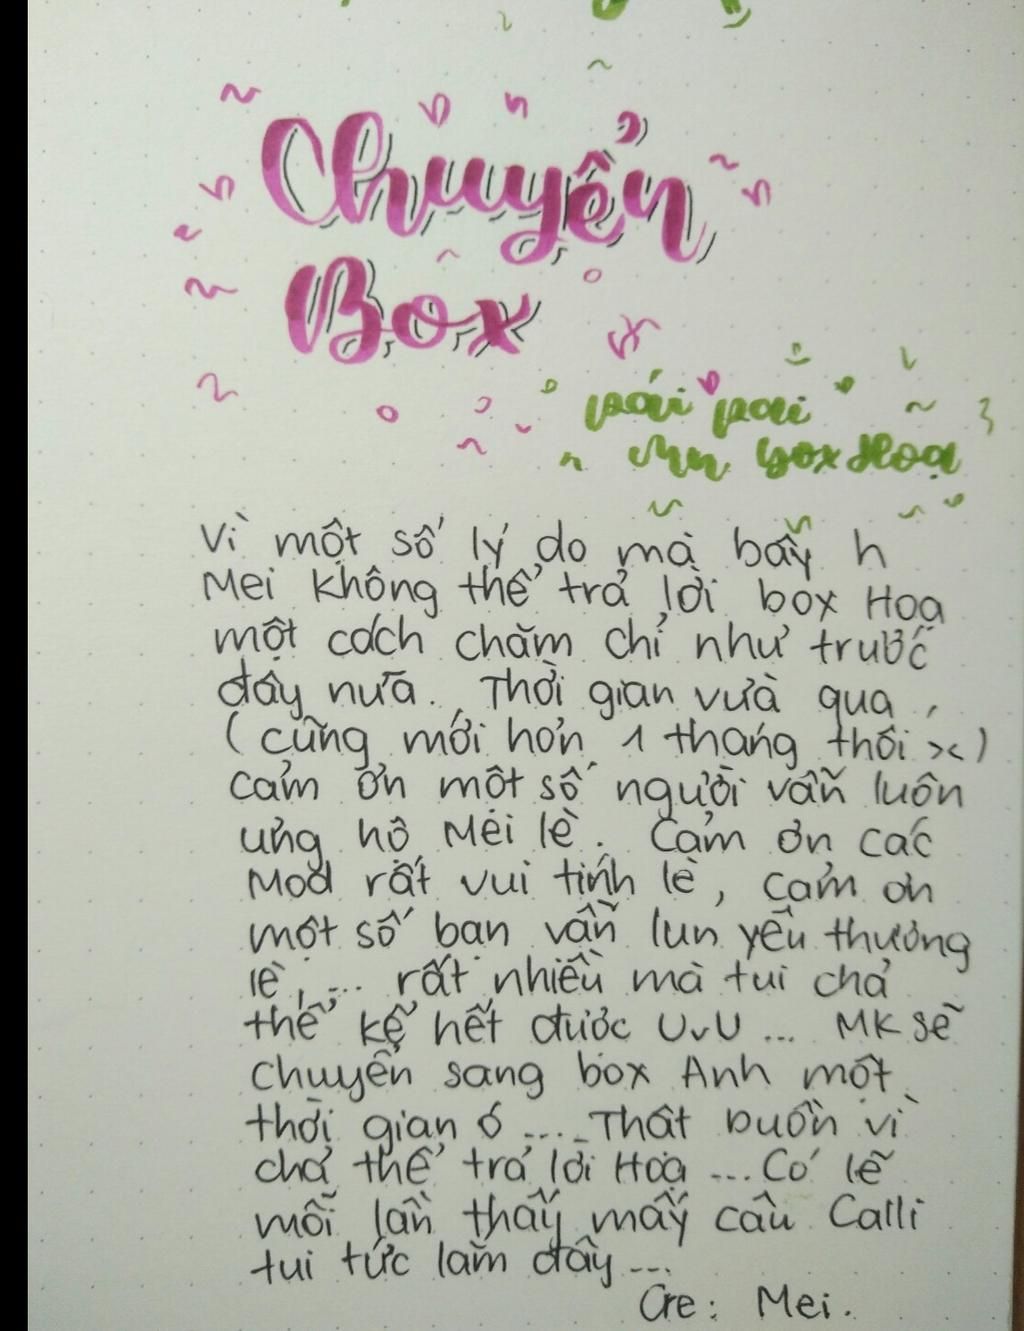 Chuyển
Box
pái pai
Mn box Hoạ
Vì một số lý do mà bây h
Mei không thể trả lời box Hoạ
một cách chăm chỉ như trước
đây nữa. Thời gian vừa qua,
(cũng mới hơn 1 tháng thôi ><)
cảm ơn một số người vẫn luôn
ủng hộ Mei lè. Cảm ơn các
Mod rất vui tính lè, cảm ơn
một số bạn vẫn lun yêu thương
lè, ... rất nhiều mà tui chả
thể kể hết được UvU ... MK sẽ
chuyển sang box Anh một
thời gian ó .... Thật buồn vì
chả thể trả lời Hoạ ... Có lẽ
mỗi lần thấy mấy câu Calli
tui tức lắm đây ...
Cre: Mei.